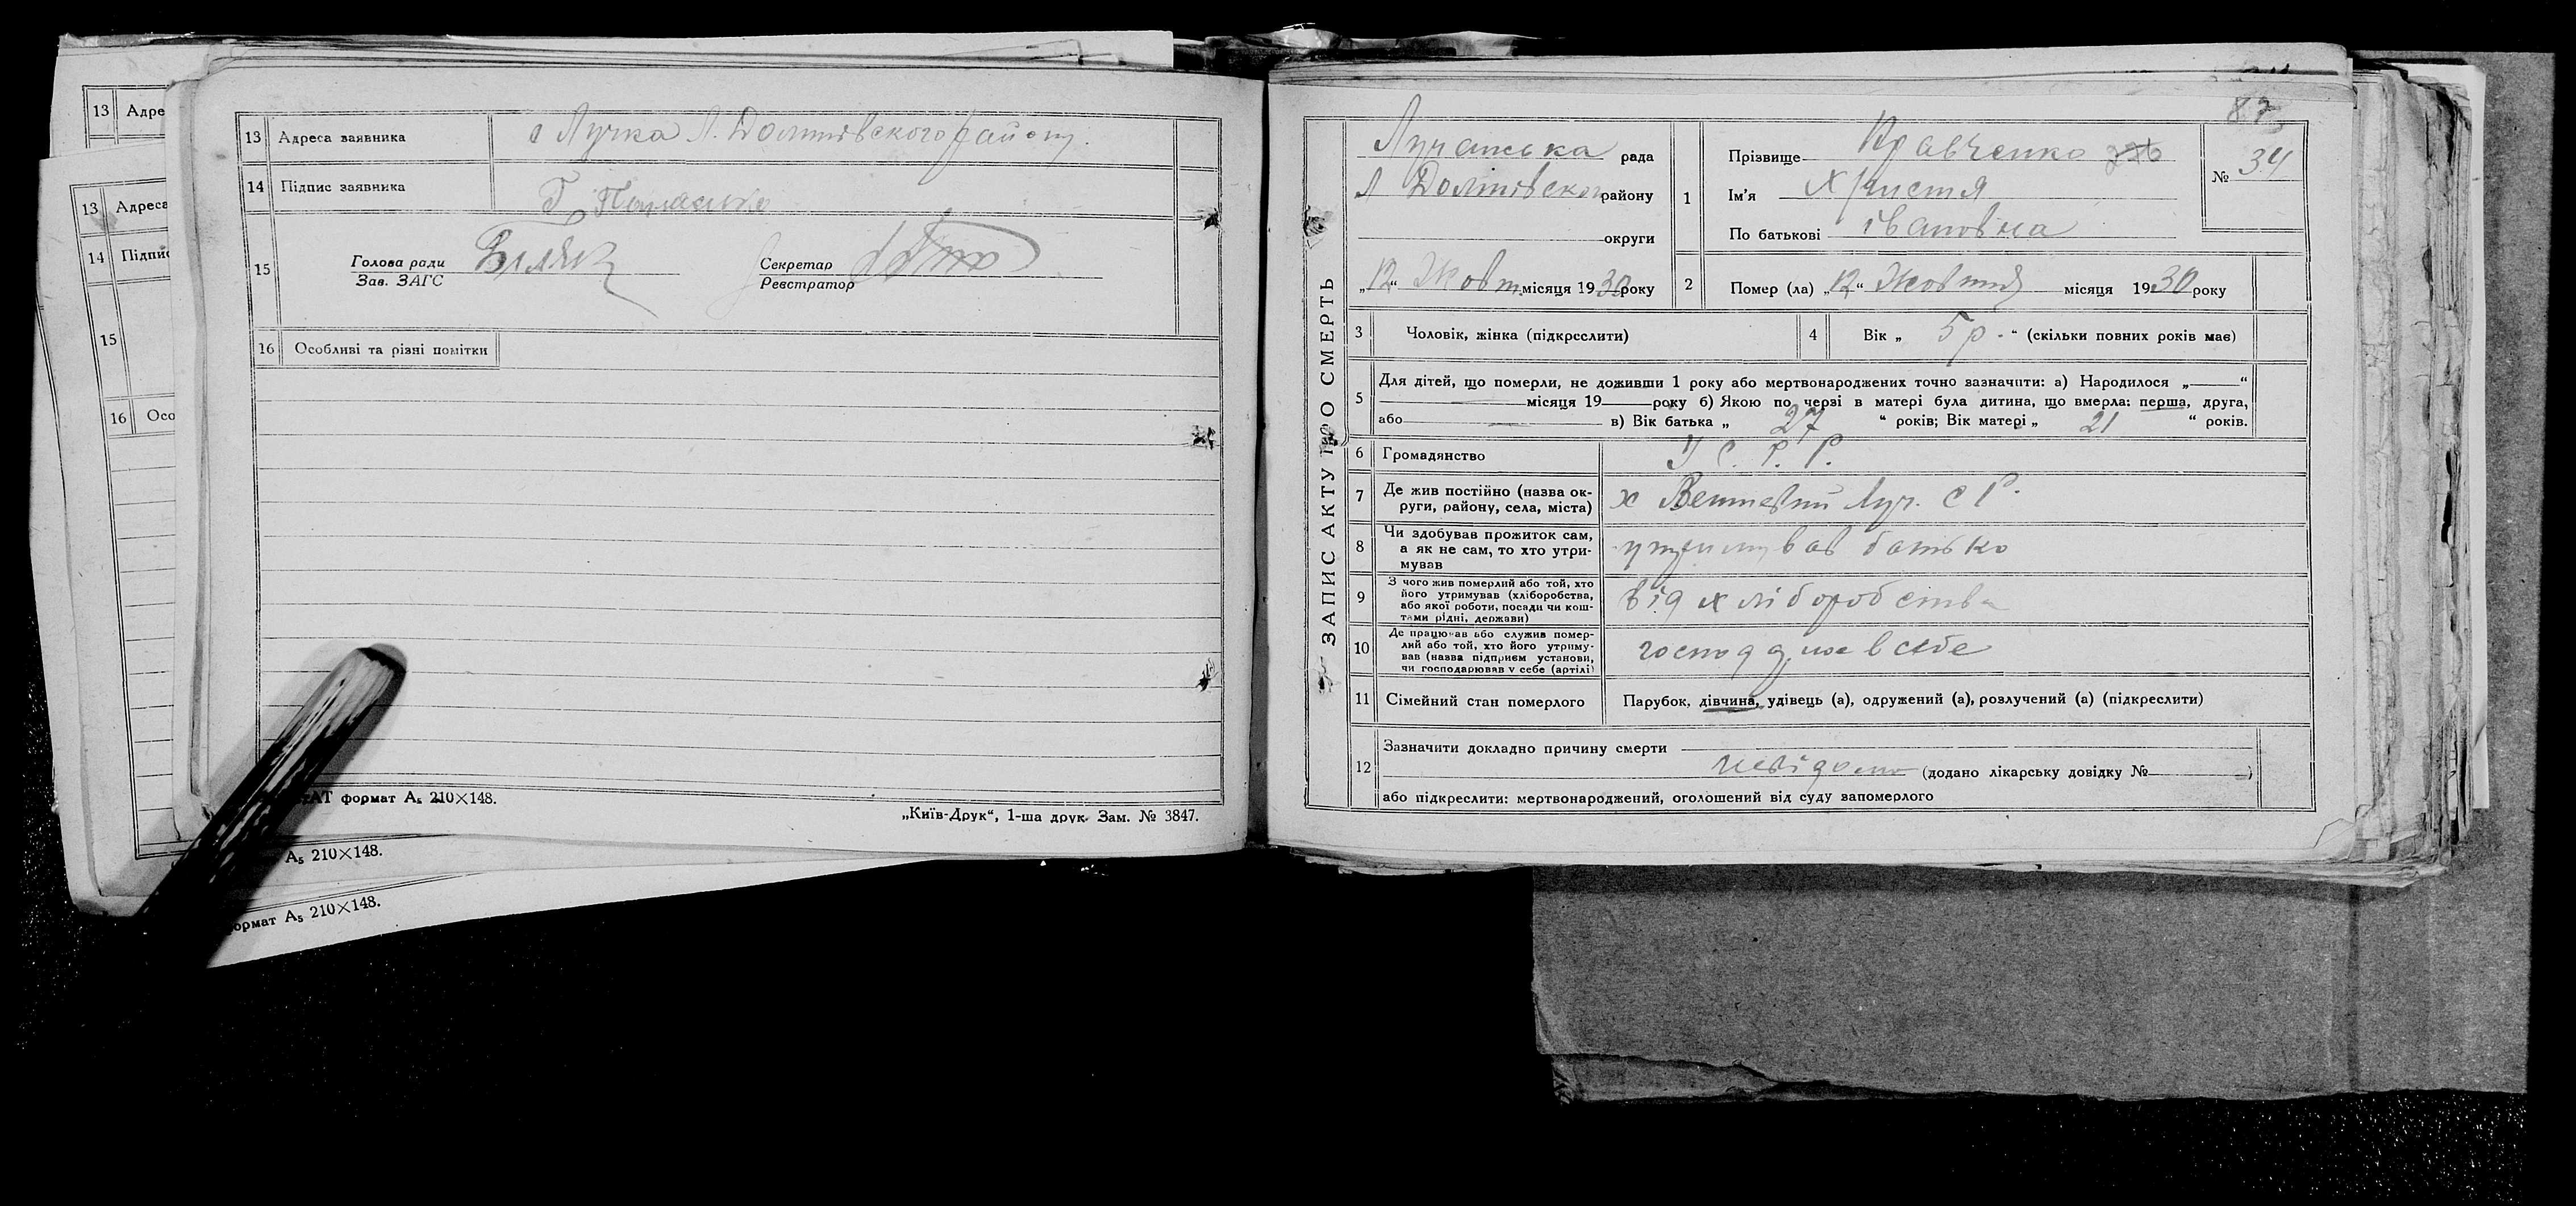 13 Адре
13 Адреса
14 Підпис
15
16 Осо
13 Адреса заявника с Лучка Л. Долинського району.
14 Підпис заявника
15 Голова ради
Зав. ЗАГС
Секретар
Реєстратор
16 Особливі та різні помітки
АТ формат А₅ 210×148.
„Київ-Друк“, 1-ша друк. Зам. № 3847.
А₅ 210×148.
формат А₅ 210×148.
87
ЗАПИС АКТУ ПРО СМЕРТЬ
Лучанська рада
району
округи
„12“ Жовт. місяця 1930 року
1 Прізвище Кравченко
Ім'я Христя
По батькові івановна
№ 34
2 Помер (ла) „12“ Жовтня місяця 1930 року
3 Чоловік, жінка (підкреслити)
4 Вік „ 5 р. “ (скільки повних років має)
5 Для дітей, що померли, не доживши 1 року або мертвонароджених точно зазначити: а) Народилося „ “
місяця 19 року б) Якою по черзі в матері була дитина, що вмерла: перша, друга,
або в) Вік батька „ 27 “ років; Вік матері „ 21 “ років.
6 Громадянство У С. Р. Р.
7 Де жив постійно (назва округи, району, села, міста) х Луч. С Р.
8 Чи здобував прожиток сам, а як не сам, то хто утримував утримував батько
9 З чого жив померлий або той, хто його утримував (хліборобства, або якої роботи, посади чи коштами рідні, держави) від хліборобства
10 Де працював або служив померлий або той, хто його утримував (назва підприєм установи, чи господарював у себе (артілі) в себе
11 Сімейний стан померлого Парубок, дівчина, удівець (а), одружений (а), розлучений (а) (підкреслити)
12 Зазначити докладно причину смерти
невідомо (додано лікарську довідку № )
або підкреслити: мертвонароджений, оголошений від суду запомерлого